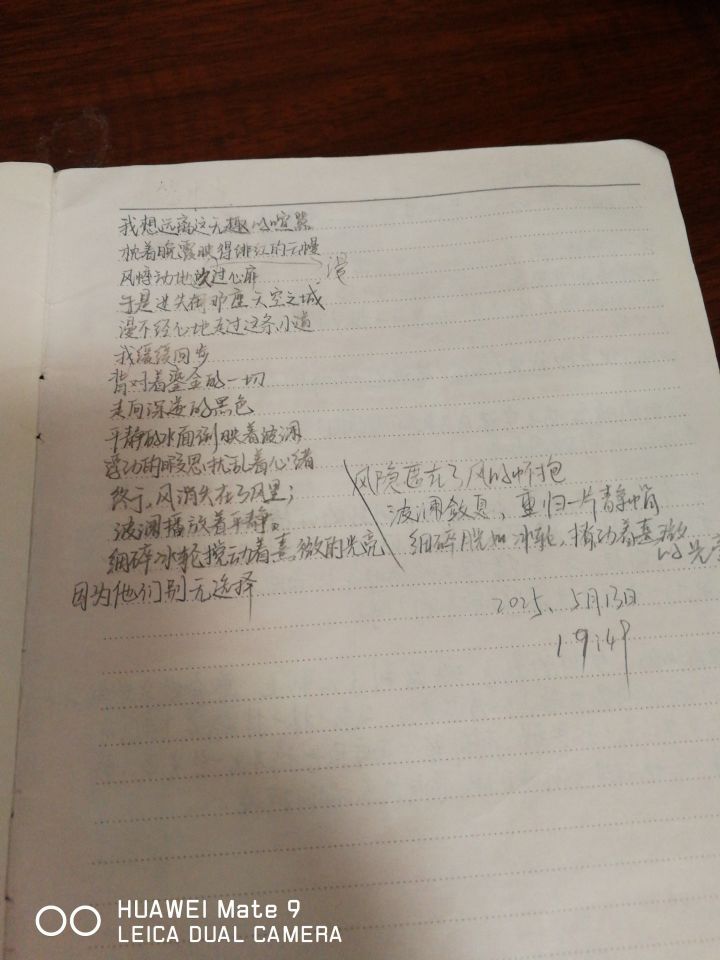 我想远离这无趣的喧嚣
枕着晚霞映得绯红的云幔
漫
风悸动地吹过心扉
于是迷失在那座天空之城
漫不经心地走过这条小道
我缓缓回步
背对着鎏金的一切
走向深邃的黑色
平静的水面倒映着波澜
浮动的暇思扰乱着心绪
终于，风消失在了风里；
波澜播放着平静。
细碎冰轮搅动着熹微的光亮
因为他们别无选择
风隐匿在了风的怀抱
波澜敛息，重归一片青
细碎 如冰轮，搅动着熹微
的光亮
2025、5月13日
19:49
HUAWEI Mate 9
LEICA DUAL CAMERA